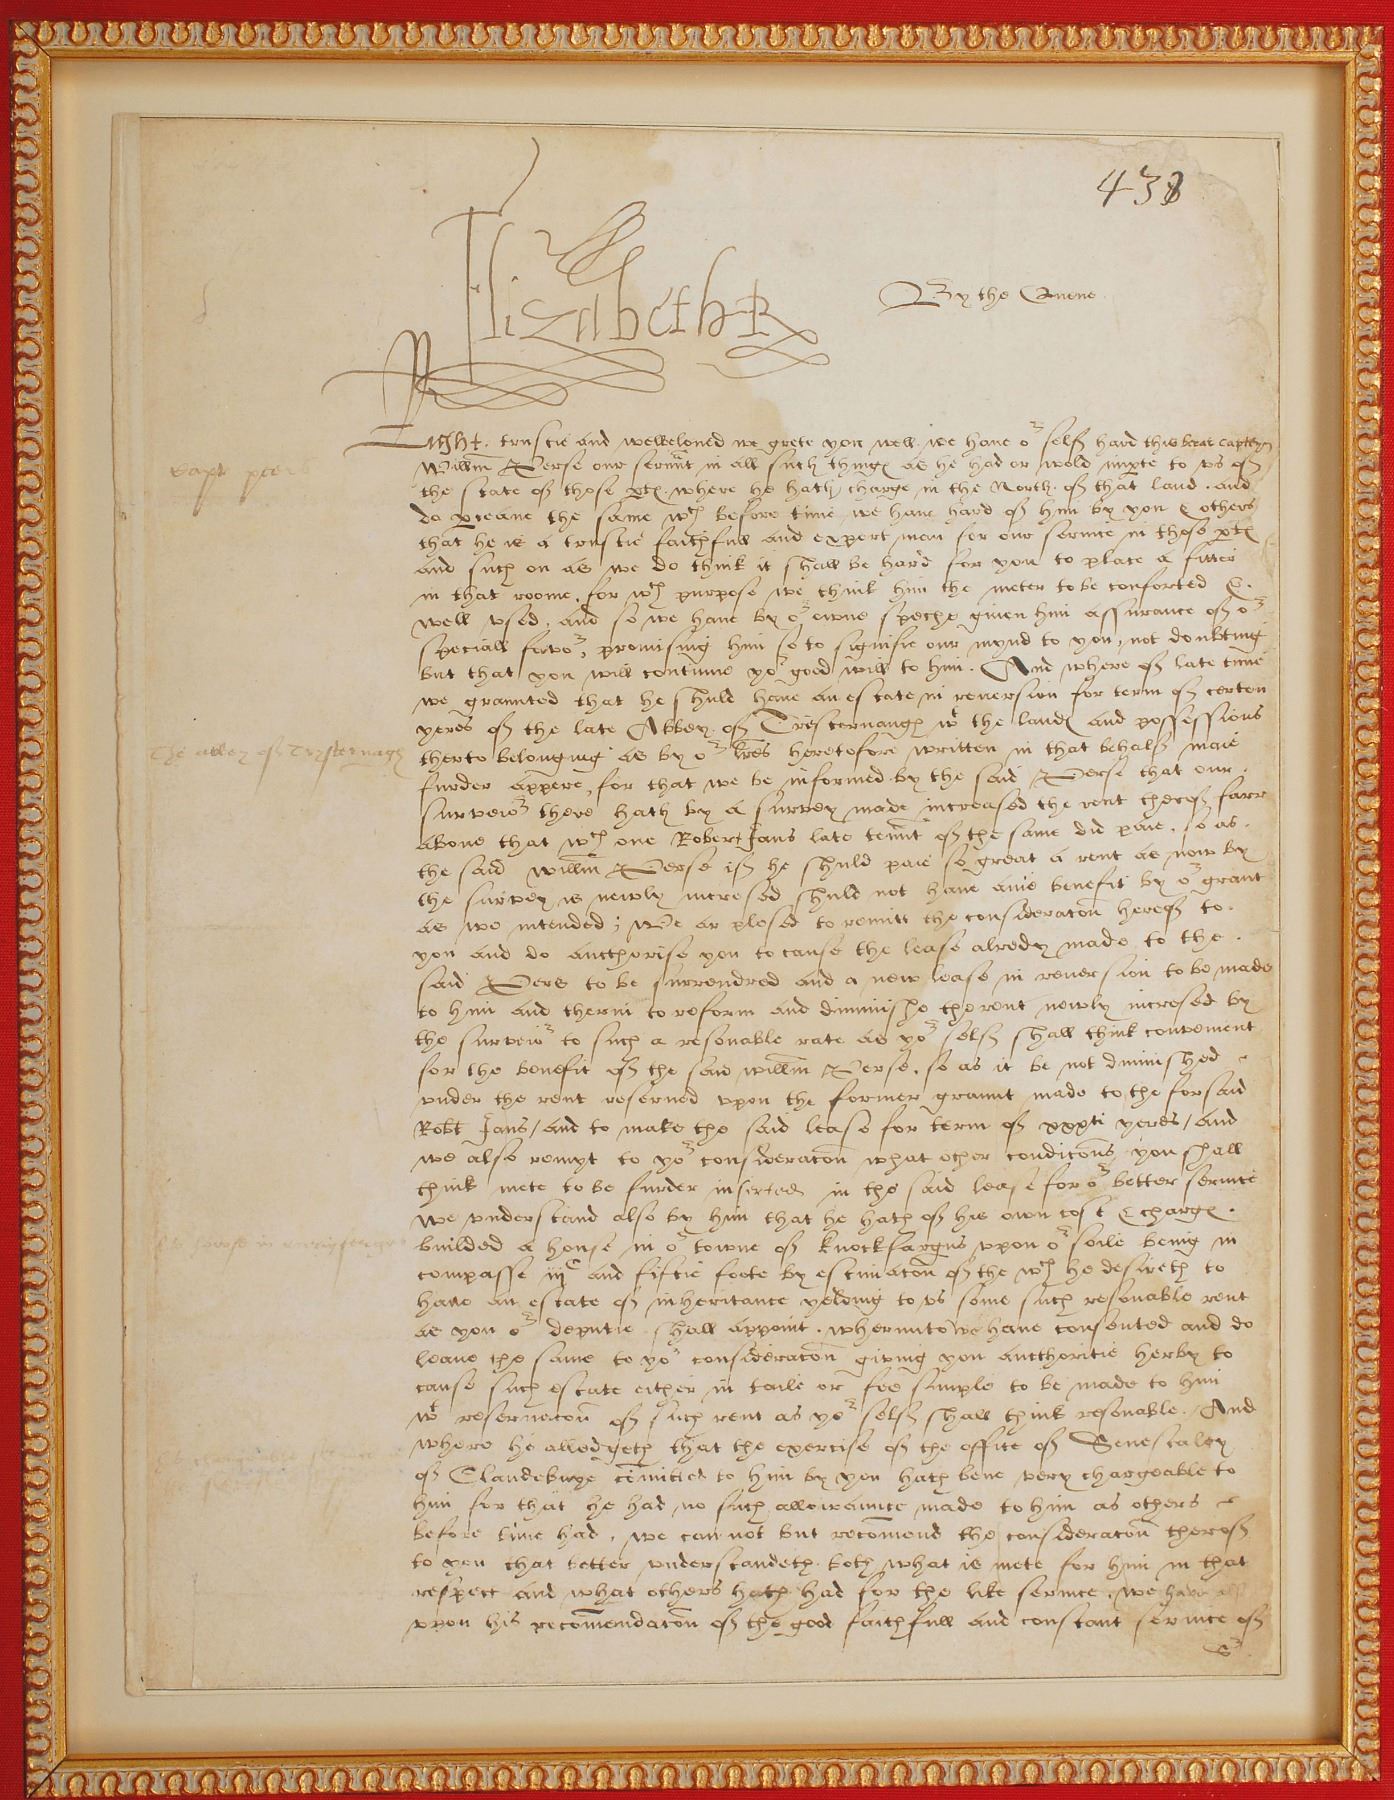 438
Elizabeth R
By the Quene
Right trustie and welbeloued we grete you well. we haue or self hard this berar captayn
Willm Perse our seruant in all such things as he had or wold imparte to vs of
the state of those partes where he hath charge in the North of that land. and
do perceaue the same wch before time we haue hard of him by you & others
that he is a trustie faithfull and expert man for our seruice in those partes
and such on as we do think it shall be hard for you to place a fitter
in that roome. for wch purpose we think him the meter to be conforted &
well vsed, and so we haue by or owne speche giuen him assurance of or
speciall favor, promising him so to signifie our mynd to you, not doubting
but that you will contynue yor good will to him. And where of late time
we graunted that he shuld haue an estate in reuersion for term of certen
yeres of the late Abbey of Tristernaugh wt the landes and possessions
therto belonging as by or lres heretofore written in that behalf maie
furder appere, for that we be informed by the said Perse that our
surveior there hath by a survey made increased the rent therof farr
aboue that wch one Robert Jans late tennt of the same did paie. so as
the said Willm Perse if he shuld paie so great a rent as now by
the survey is newly incresed shuld not haue anie benefit by or grant
as we intended; We ar plesed to remitt the consideracon herof to
you and do aucthorise you to cause the lease alredy made to the
said Pers to be surrendred and a new lease in reuersion to be made
to him and therin to reform and diminishe the rent newly incresed by
the surveior to such a resonable rate as yor self shall think conuenient
for the benefit of the said willm Perse. so as it be not diminished
vnder the rent reserued vpon the former graunt made to the forsaid
Robt Jans / and to make the said lease for term of xxxti yeres / and
we also remyt to yor consideracon what other condicons you shall
think mete to be furder inserted in the said lease for or better seruice
We vnderstand also by him that he hath of his own cost & charges
builded a house in or towne of knockfargus vpon or soile being in
compasse iijC and fiftie foote by estimacon of the wch he desireth to
haue an estate of inheritance yelding to vs some such resonable rent
as you or deputie shall appoint. wherunto we haue consented and do
leaue the same to yor consideracon giving you aucthoritie herby to
cause such estate either in taile or fee simple to be made to him
wt reseruacon of such rent as yor self shall think resonable. / And
where he alledgeth that the exercise of the office of Senescalcy
of Clandeboye comitted to him by you hath bene very chargeable to
him for that he had no such allowaunce made to him as others
before time had, we can not but recomend the consideracon therof
to you that better vnderstandeth both what is mete for him in that
respect and what others hath had for the like seruice. we haue
vpon his recomendacon of the good faithfull and constant seruice of
capt peers
The abbey of Trysternagh